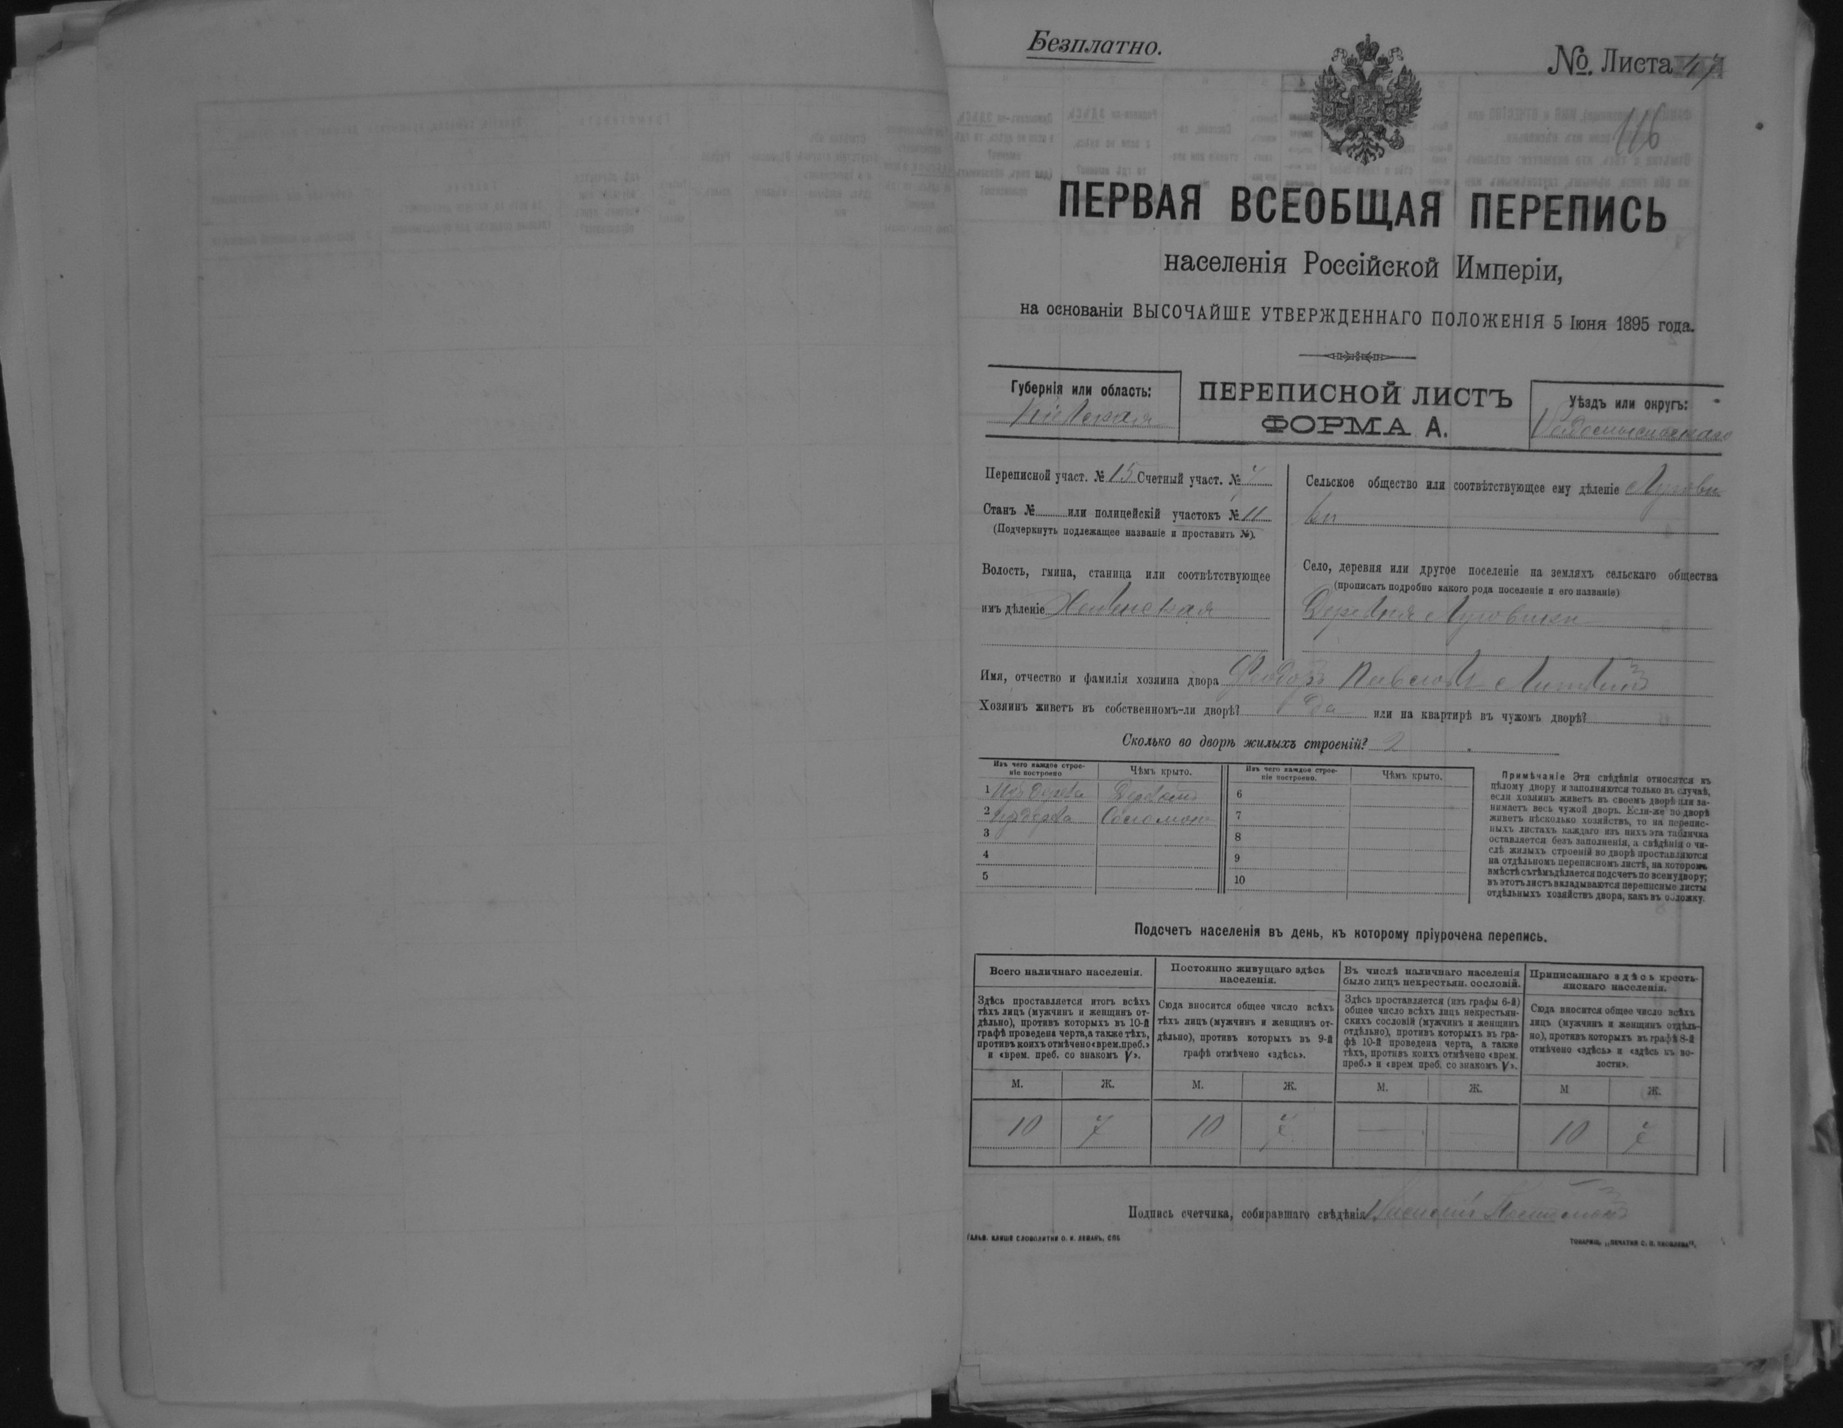 Безплатно.
№. Листа 47
116
ПЕРВАЯ ВСЕОБЩАЯ ПЕРЕПИСЬ
населенія Россійской Имперіи,
на основаніи ВЫСОЧАЙШЕ УТВЕРЖДЕННАГО ПОЛОЖЕНІЯ 5 Іюня 1895 года.
Губернія или область:
Кіевская
ПЕРЕПИСНОЙ ЛИСТЪ
ФОРМА А.
Уѣздъ или округъ:
Переписной участ. № 15 Счетный участ. №
Станъ № или полицейскій участокъ № 11
(Подчеркнуть подлежащее названіе и проставить №).
Волость, гмина, станица или соотвѣтствующее
имъ дѣленіе
Сельское общество или соотвѣтствующее ему дѣленіе
Село, деревня или другое поселеніе на земляхъ сельскаго общества
(прописать подробно какого рода поселеніе и его названіе)
Деревня
Имя, отчество и фамилія хозяина двора Феодоръ
Хозяинъ живетъ въ собственномъ-ли дворѣ? Да или на квартирѣ въ чужомъ дворѣ?
Сколько во дворѣ жилыхъ строеній? 2
Изъ чего каждое строе-
ніе построено
Чѣмъ крыто.
Изъ чего каждое строе-
ніе построено.
Чѣмъ крыто.
1 Изъ дерева
2
3
4
5
6
7
8
9
10
Примѣчаніе Эти свѣдѣнія относятся къ
цѣлому двору и заполняются только въ случаѣ,
если хозяинъ живетъ въ своемъ дворѣ или за-
нимаетъ весь чужой дворъ. Если-же во дворѣ
живетъ нѣсколько хозяйствъ, то на перепис-
ныхъ листахъ каждаго изъ нихъ эта табличка
оставляется безъ заполненія, а свѣдѣнія о чи-
слѣ жилыхъ строеній во дворѣ проставляются
на отдѣльномъ переписномъ листѣ, на которомъ
вмѣстѣ съ тѣмъ дѣлается подсчетъ по всему двору;
въ этотъ листъ вкладываются переписные листы
отдѣльныхъ хозяйствъ двора, какъ въ обложку.
Подсчетъ населенія въ день, къ которому пріурочена перепись.
Всего наличнаго населенія.
Здѣсь проставляется итогъ всѣхъ
тѣхъ лицъ (мужчинъ и женщинъ от-
дѣльно), противъ которыхъ въ 10-й
графѣ проведена черта, а также тѣхъ,
противъ коихъ отмѣчено «врем. преб.»
и «врем. преб. со знакомъ V».
Постоянно живущаго здѣсь
населенія.
Сюда вносится общее число всѣхъ
тѣхъ лицъ (мужчинъ и женщинъ от-
дѣльно), противъ которыхъ въ 9-й
графѣ отмѣчено «здѣсь».
Въ числѣ наличнаго населенія
было лицъ некрестьян. сословій.
Здѣсь проставляется (изъ графы 6-й)
общее число всѣхъ лицъ некрестьян-
скихъ сословій (мужчинъ и женщинъ
отдѣльно), противъ которыхъ въ гра-
фѣ 10-й проведена черта, а также
тѣхъ, противъ коихъ отмѣчено «врем.
преб.» и «врем преб. со знакомъ V».
Приписаннаго здѣсь кресть-
янскаго населенія.
Сюда вносится общее число всѣхъ
лицъ (мужчинъ и женщинъ отдѣль-
но), противъ которыхъ въ графѣ 8-й
отмѣчено «здѣсь» и «здѣсь къ во-
лости».
М. Ж. М. Ж. М. Ж. М Ж.
10 7 10 7 — — 10 7
Подпись счетчика, собиравшаго свѣдѣнія
ГАЛЬВ. КЛИШЕ СЛОВОЛИТНИ О. И. ЛЕМАНЪ, СПБ
ТОВАРИЩ. „ПЕЧАТНЯ С. П. ЯКОВЛЕВА“.